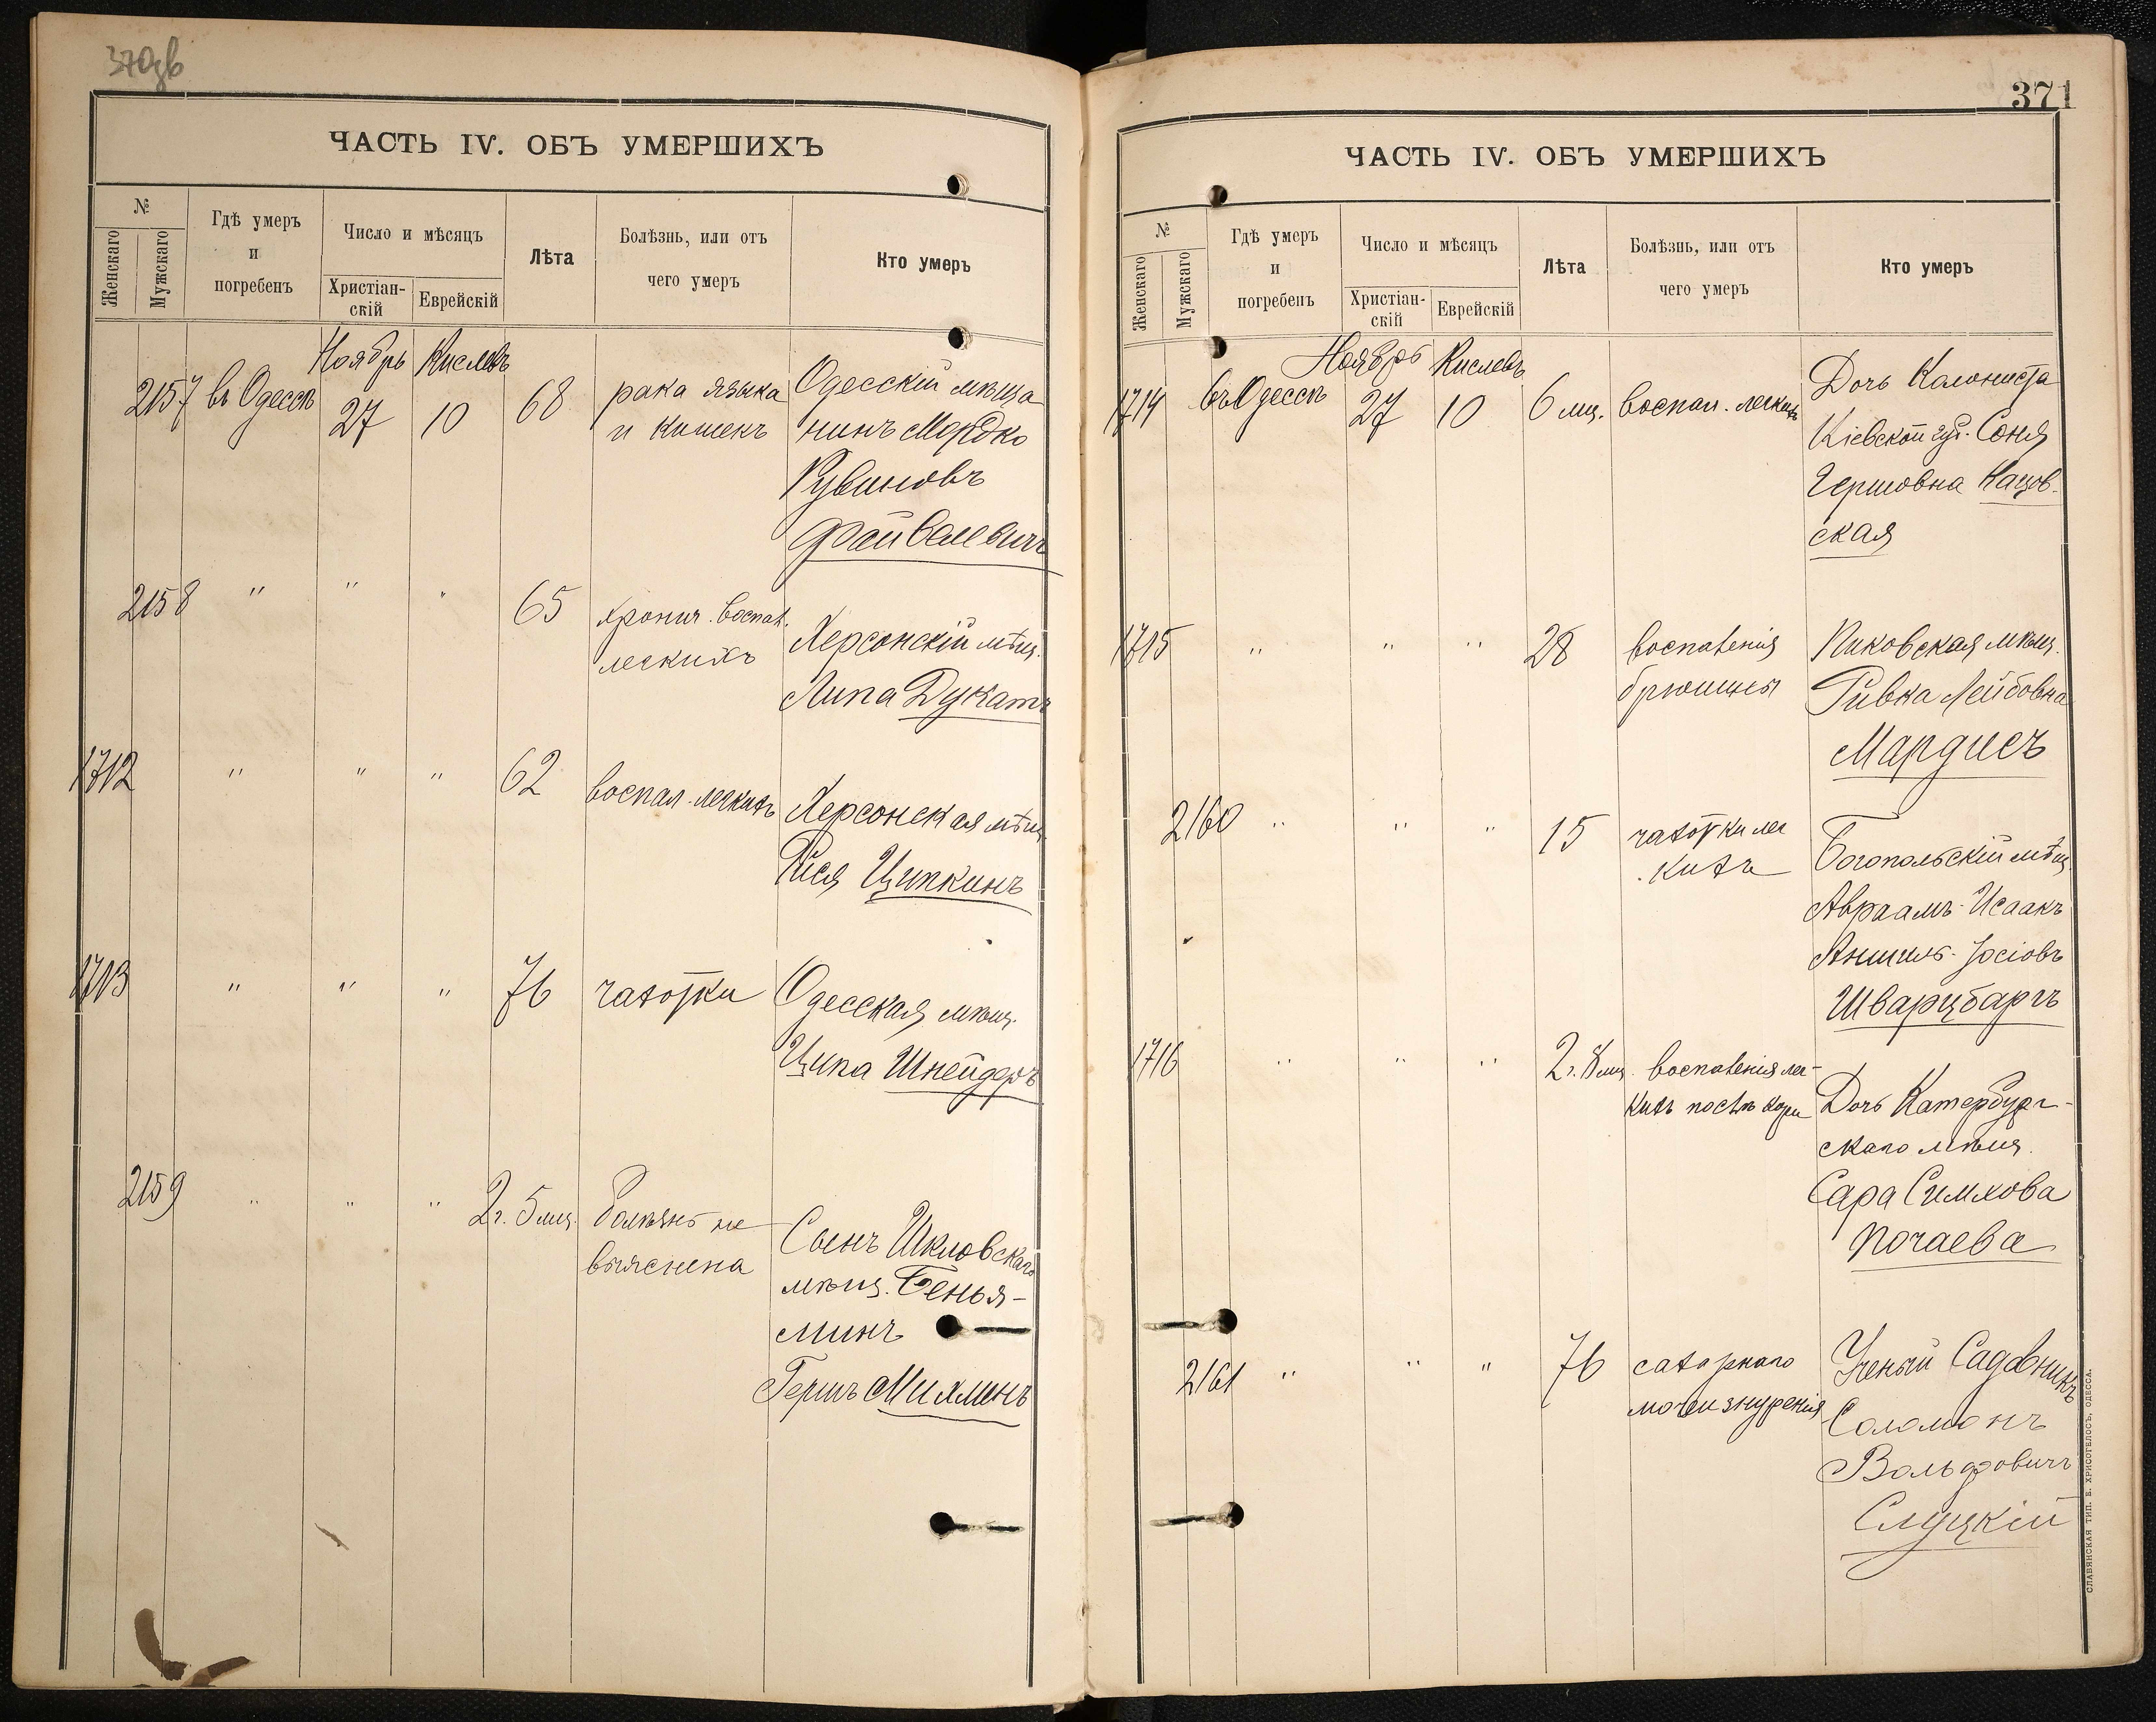 370зв
ЧАСТЬ IV. ОБЪ УМЕРШИХЪ
№
Женскаго
Мужскаго
Гдѣ умеръ
и
погребенъ
Число и мѣсяцъ
Христіан-
скій
Еврейскій
Лѣта
Болѣзнь, или отъ
чего умеръ
Кто умеръ
Ноябрь Кислевъ
2157 въ Одессѣ 27 10 68 рака языка Одесскій мѣща
и кишекъ нинъ Мордко
Рувиновъ
Файвелевичъ
2158 " " " 65 хронич. воспал. Херсонскій мѣщ.
легкихъ Липа Дукатъ
1712 " " " 62 воспал. легкихъ Херсонская мѣщ
Рися Ципкинъ
1713 " " " 76 чахотки Одесская мѣщ.
Ципа Шнейдеръ
2159 " " " 2г. 5 мц. болѣзнь не Сынъ Шкловскаго
выяснена мѣщ. Бенья-
минъ
Гершъ Михлинъ
371
ЧАСТЬ IV. ОБЪ УМЕРШИХЪ
№
Женскаго
Мужскаго
Гдѣ умеръ
и
погребенъ
Число и мѣсяцъ
Христіан-
скій
Еврейскій
Лѣта
Болѣзнь, или отъ
чего умеръ
Кто умеръ
Ноябрь Кислевъ
1714 въ Одессѣ 27 10 6 мц. воспал. легкихъ Дочь Колониста
Кіевской губ. Соня
Гершовна
ская
1715 " " " 28 воспаленія Пиковская мѣщ.
брюшины Ривка Лейбовна
Мардисъ
2160 " " " 15 чахотки лег Богопольскій мѣщ
кихъ Авраамъ-Исаакъ
Аншель-Іосіовъ
Шварцбаргъ
1716 " " " 2г. 8 мц. воспаленія лег-
кихъ послѣ кори Дочь Катербург-
скаго мѣщ.
Сара Симхова
Почаева
2161 " " " 76 сахарнаго Ученый Садовникъ
мочеизнуренія Соломонъ
Вольфовичъ
Слуцкій
СЛАВЯНСКАЯ ТИП. Е. ХРИСОГЕЛОСЪ, ОДЕССА.